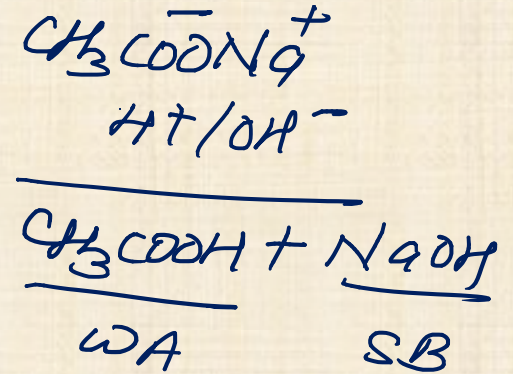 CH₃COO⁻Na⁺
H⁺/OH⁻
CH₃COOH + NaOH
WA SB